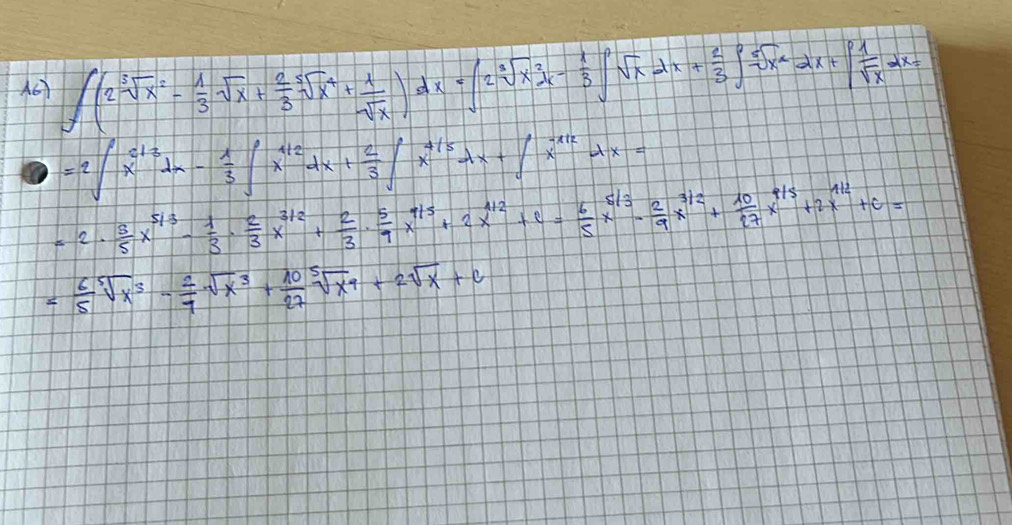 16) ∫(2∛x² - 1/3 √x + 2/3 ⁵√x⁴ + 1/√x) dx = ∫2∛x² dx - 1/3 ∫√x dx + 2/3 ∫⁵√x⁴ dx + ∫1/√x dx =
= 2∫x^(2/3) dx - 1/3 ∫x^(1/2) dx + 2/3 ∫x^(4/5) dx + ∫x^(-1/2) dx =
= 2 · 3/5 x^(5/3) - 1/3 · 2/3 x^(3/2) + 2/3 · 5/9 x^(9/5) + 2x^(1/2) + C = 6/5 x^(5/3) - 2/9 x^(3/2) + 10/27 x^(9/5) + 2x^(1/2) + C =
= 6/5 ⁵√x³ - 2/9 √x³ + 10/27 ⁵√x⁹ + 2√x + C